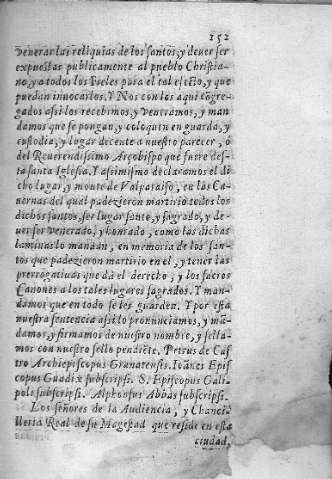 152
venerar las reliquias de los santos, y deuer ser
expuestas publicamente al pueblo Christia-
no, y a todos los fieles para el tal efecto, y que
puedan inuocarlos. Y Nos con los aqui cõgre-
gados assi los recebimos, y veneramos, y man
damos que se pongan, y coloquen en guarda, y
custodia, y lugar decente a nuestro parecer, ò
del Reuerendissimo Arçobispo que fuere des-
ta santa Iglesia. Y assimismo declaramos el di
cho lugar, y monte de Valparaiso, en las Ca-
uernas del qual padezieron martirio todos los
dichos santos, ser lugar santo, y sagrado, y de-
uer ser venerado, y honrado, como las dichas
laminas lo mandan, en memoria de los san-
tos que padezieron martirio en el, y tener las
prerrogatiuas que da el derecho, y los sacros
Canones a los tales lugares sagrados. Y man-
damos que en todo se les guarden. Y por esta
nuestra sentencia assi lo pronunciamos, y mã
damos, y firmamos de nuestro nombre, y sella-
mos con nuestro sello pendiẽte. Petrus de Cas
tro Archiepiscopus Granatensis. Ioãnes Epis
copus Guadix subscripsi. S. Episcopus Gali-
pol. subscripsi. Alphonsus Abbas subscripsi.
Los señores de la Audiencia, y Chanci
lleria Real de su Magestad que reside en esta
ciudad,